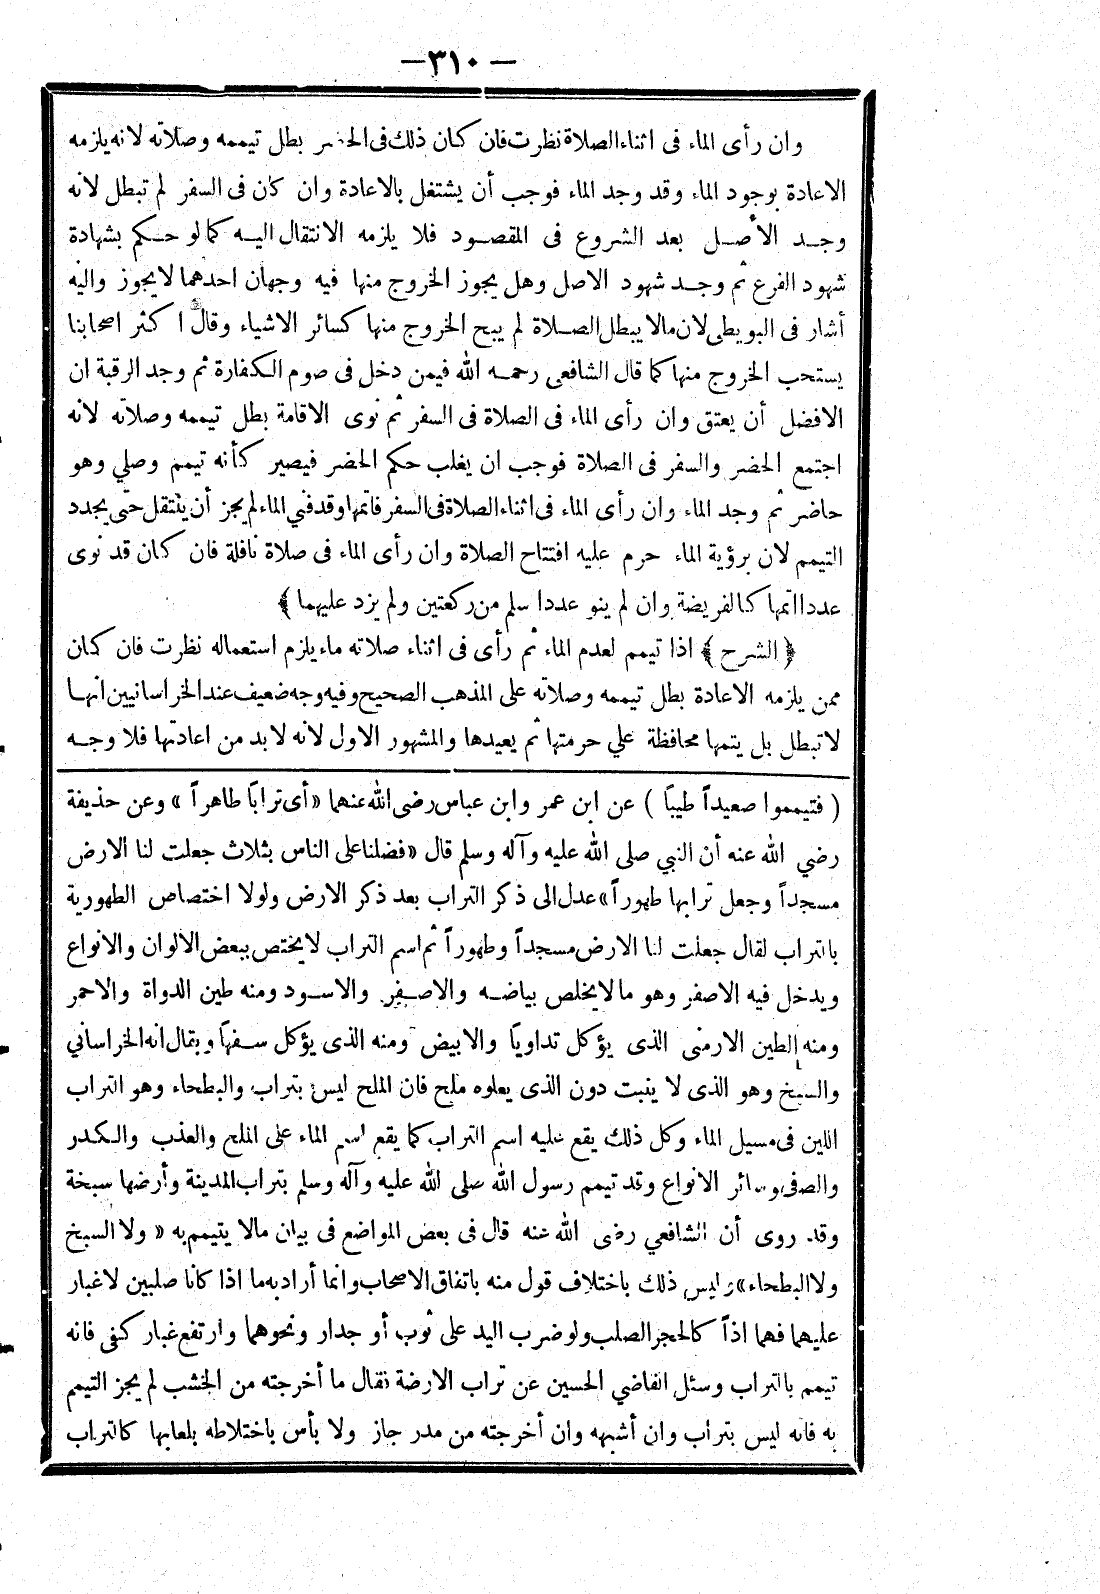 — ٣١٠ —
وان رأى الماء فى اثناء الصلاة نظرت فان كان ذلك فى الحضر بطل تيممه وصلاته لانه يلزمه
الاعادة بوجود الماء وقد وجد الماء فوجب أن يشتغل بالاعادة وان كان فى السفر لم تبطل لانه
وجد الأصل بعد الشروع فى المقصود فلا يلزمه الانتقال اليه كما لو حكم بشهادة
شهود الفرع ثم وجد شهود الاصل وهل يجوز الخروج منها فيه وجهان احدهما لا يجوز واليه
أشار فى البويطى لان مالا يبطل الصلاة لم يبح الخروج منها كسائر الاشياء وقال اكثر اصحابنا
يستحب الخروج منها كما قال الشافعى رحمه الله فيمن دخل فى صوم الكفارة ثم وجد الرقبة ان
الافضل أن يعتق وان رأى الماء فى الصلاة فى السفر ثم نوى الاقامة بطل تيممه وصلاته لانه
اجتمع الحضر والسفر فى الصلاة فوجب ان يغلب حكم الحضر فيصير كأنه تيمم وصلي وهو
حاضر ثم وجد الماء وان رأى الماء فى اثناء الصلاة فى السفر فاتمها وقد فني الماء لم يجز أن ينتقل حتى يجدد
التيمم لان برؤية الماء حرم عليه افتتاح الصلاة وان رأى الماء فى صلاة نافلة فان كان قد نوى
عددا اتمها كالفريضة وان لم ينو عددا سلم من ركعتين ولم يزد عليهما ﴾
﴿ الشرح ﴾ اذا تيمم لعدم الماء ثم رأى فى اثناء صلاته ماء يلزم استعماله نظرت فان كان
ممن يلزمه الاعادة بطل تيممه وصلاته على المذهب الصحيح وفيه وجه ضعيف عند الخراسانيين انها
لا تبطل بل يتمها محافظة علي حرمتها ثم يعيدها والمشهور الاول لانه لا بد من اعادتها فلا وجه
( فتيمموا صعيداً طيبًا ) عن ابن عمر وابن عباس رضى الله عنهما « أى ترابًا طاهراً » وعن حذيفة
رضي الله عنه أن النبي صلى الله عليه وآله وسلم قال « فضلنا على الناس بثلاث جعلت لنا الارض
مسجداً وجعل ترابها طهوراً » عدل الى ذكر التراب بعد ذكر الارض ولولا اختصاص الطهورية
بالتراب لقال جعلت لنا الارض مسجداً وطهوراً ثم اسم التراب لا يختص ببعض الالوان والانواع
ويدخل فيه الاصفر وهو ما لا يخلص بياضه والاصفر والاسود ومنه طين الدواة والاحمر
ومنه الطين الارمنى الذى يؤكل تداويًا والابيض ومنه الذى يؤكل سفهًا ويقال انه الخراساني
والسبخ وهو الذى لا ينبت دون الذى يعلوه ملح فان الملح ليس بتراب والبطحاء وهو التراب
اللين فى مسيل الماء وكل ذلك يقع عليه اسم التراب كما يقع اسم الماء على الملح والعذب والكدر
والصفى وسائر الانواع وقد تيمم رسول الله صلى الله عليه وآله وسلم بتراب المدينة وأرضها سبخة
وقد روى أن الشافعي رضى الله عنه قال فى بعض المواضع فى بيان مالا يتيمم به « ولا السبخ
ولا البطحاء » وليس ذلك باختلاف قول منه باتفاق الاصحاب وانما أراد به ما اذا كانا صلبين لا غبار
عليهما فهما اذاً كالحجر الصلب ولو ضرب اليد على ثوب أو جدار ونحوهما وارتفع غبار كفى فانه
تيمم بالتراب وسئل القاضي الحسين عن تراب الارضة فقال ما أخرجته من الخشب لم يجز التيمم
به فانه ليس بتراب وان أشبهه وان أخرجته من مدر جاز ولا بأس باختلاطه بلعابها كالتراب